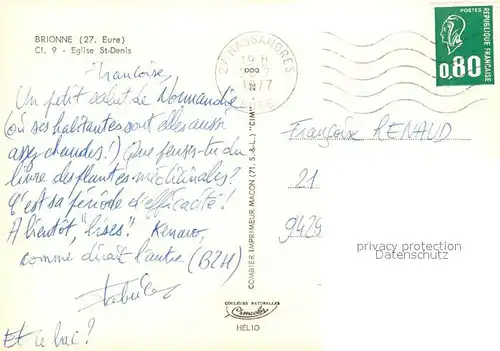 BRIONNE (27. Eure)
Cl. 9 - Eglise St-Denis
27 NASSANDRES
19 H
1977
EURE
POSTES
REPUBLIQUE FRANÇAISE
0,80
Françoise,
Un petit salut de Normandie
(où ses habitantes sont elles aussi
assez chaudes!) Que penses-tu du
livre des plantes médicinales?
C'est sa période d'efficacité!
A bientôt, "bises". Kenavo,
comme dirait l'autre (BZH)
Et ce bac?
Françoise RENAUD
21
9429
COMBIER IMPRIMEUR MACON (71. S.-&-L.) "CIM"
COULEURS NATURELLES
Cimcolor
HÉLIO
privacy protection
Datenschutz